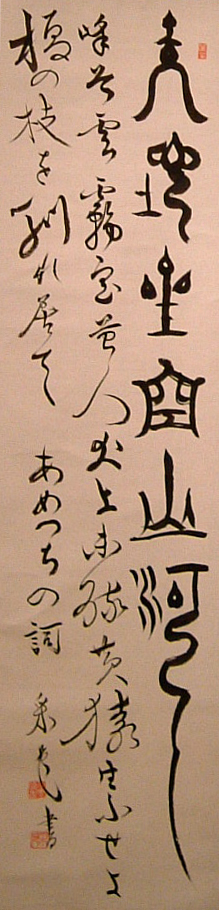 天地星空山河
峰谷雲霧室苔人犬上末硫黄猿生ふせよ
榎の枝を馴れ居て あめつちの詞 書